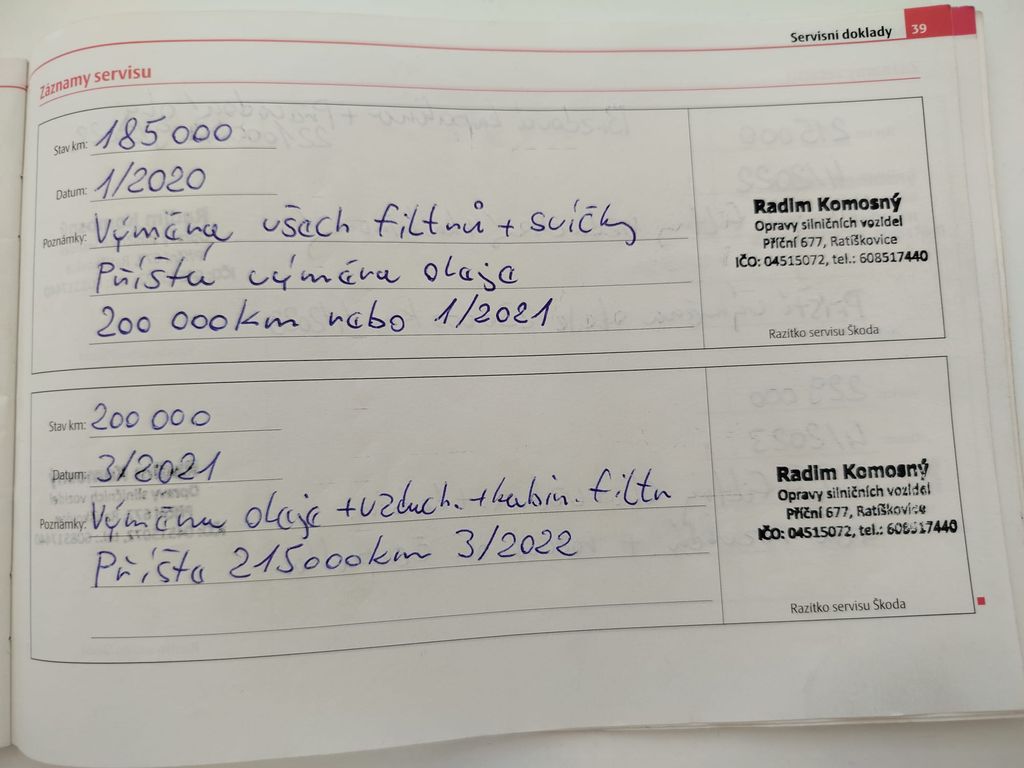 Servisní doklady 39
Záznamy servisu
Stav km: 185 000
Datum: 1/2020
Poznámky: Výměna všech filtrů + svíčky
Příští výměna oleje
200 000km nebo 1/2021
Radim Komosný
Opravy silničních vozidel
Příční 677, Ratíškovice
IČO: 04515072, tel.: 608517440
Razítko servisu Škoda
Stav km: 200 000
Datum: 3/2021
Poznámky: Výměna oleje + vzduch. + kabin. filtr
Příšta 215000km 3/2022
Radim Komosný
Opravy silničních vozidel
Příční 677, Ratíškovice
IČO: 04515072, tel.: 608517440
Razítko servisu Škoda